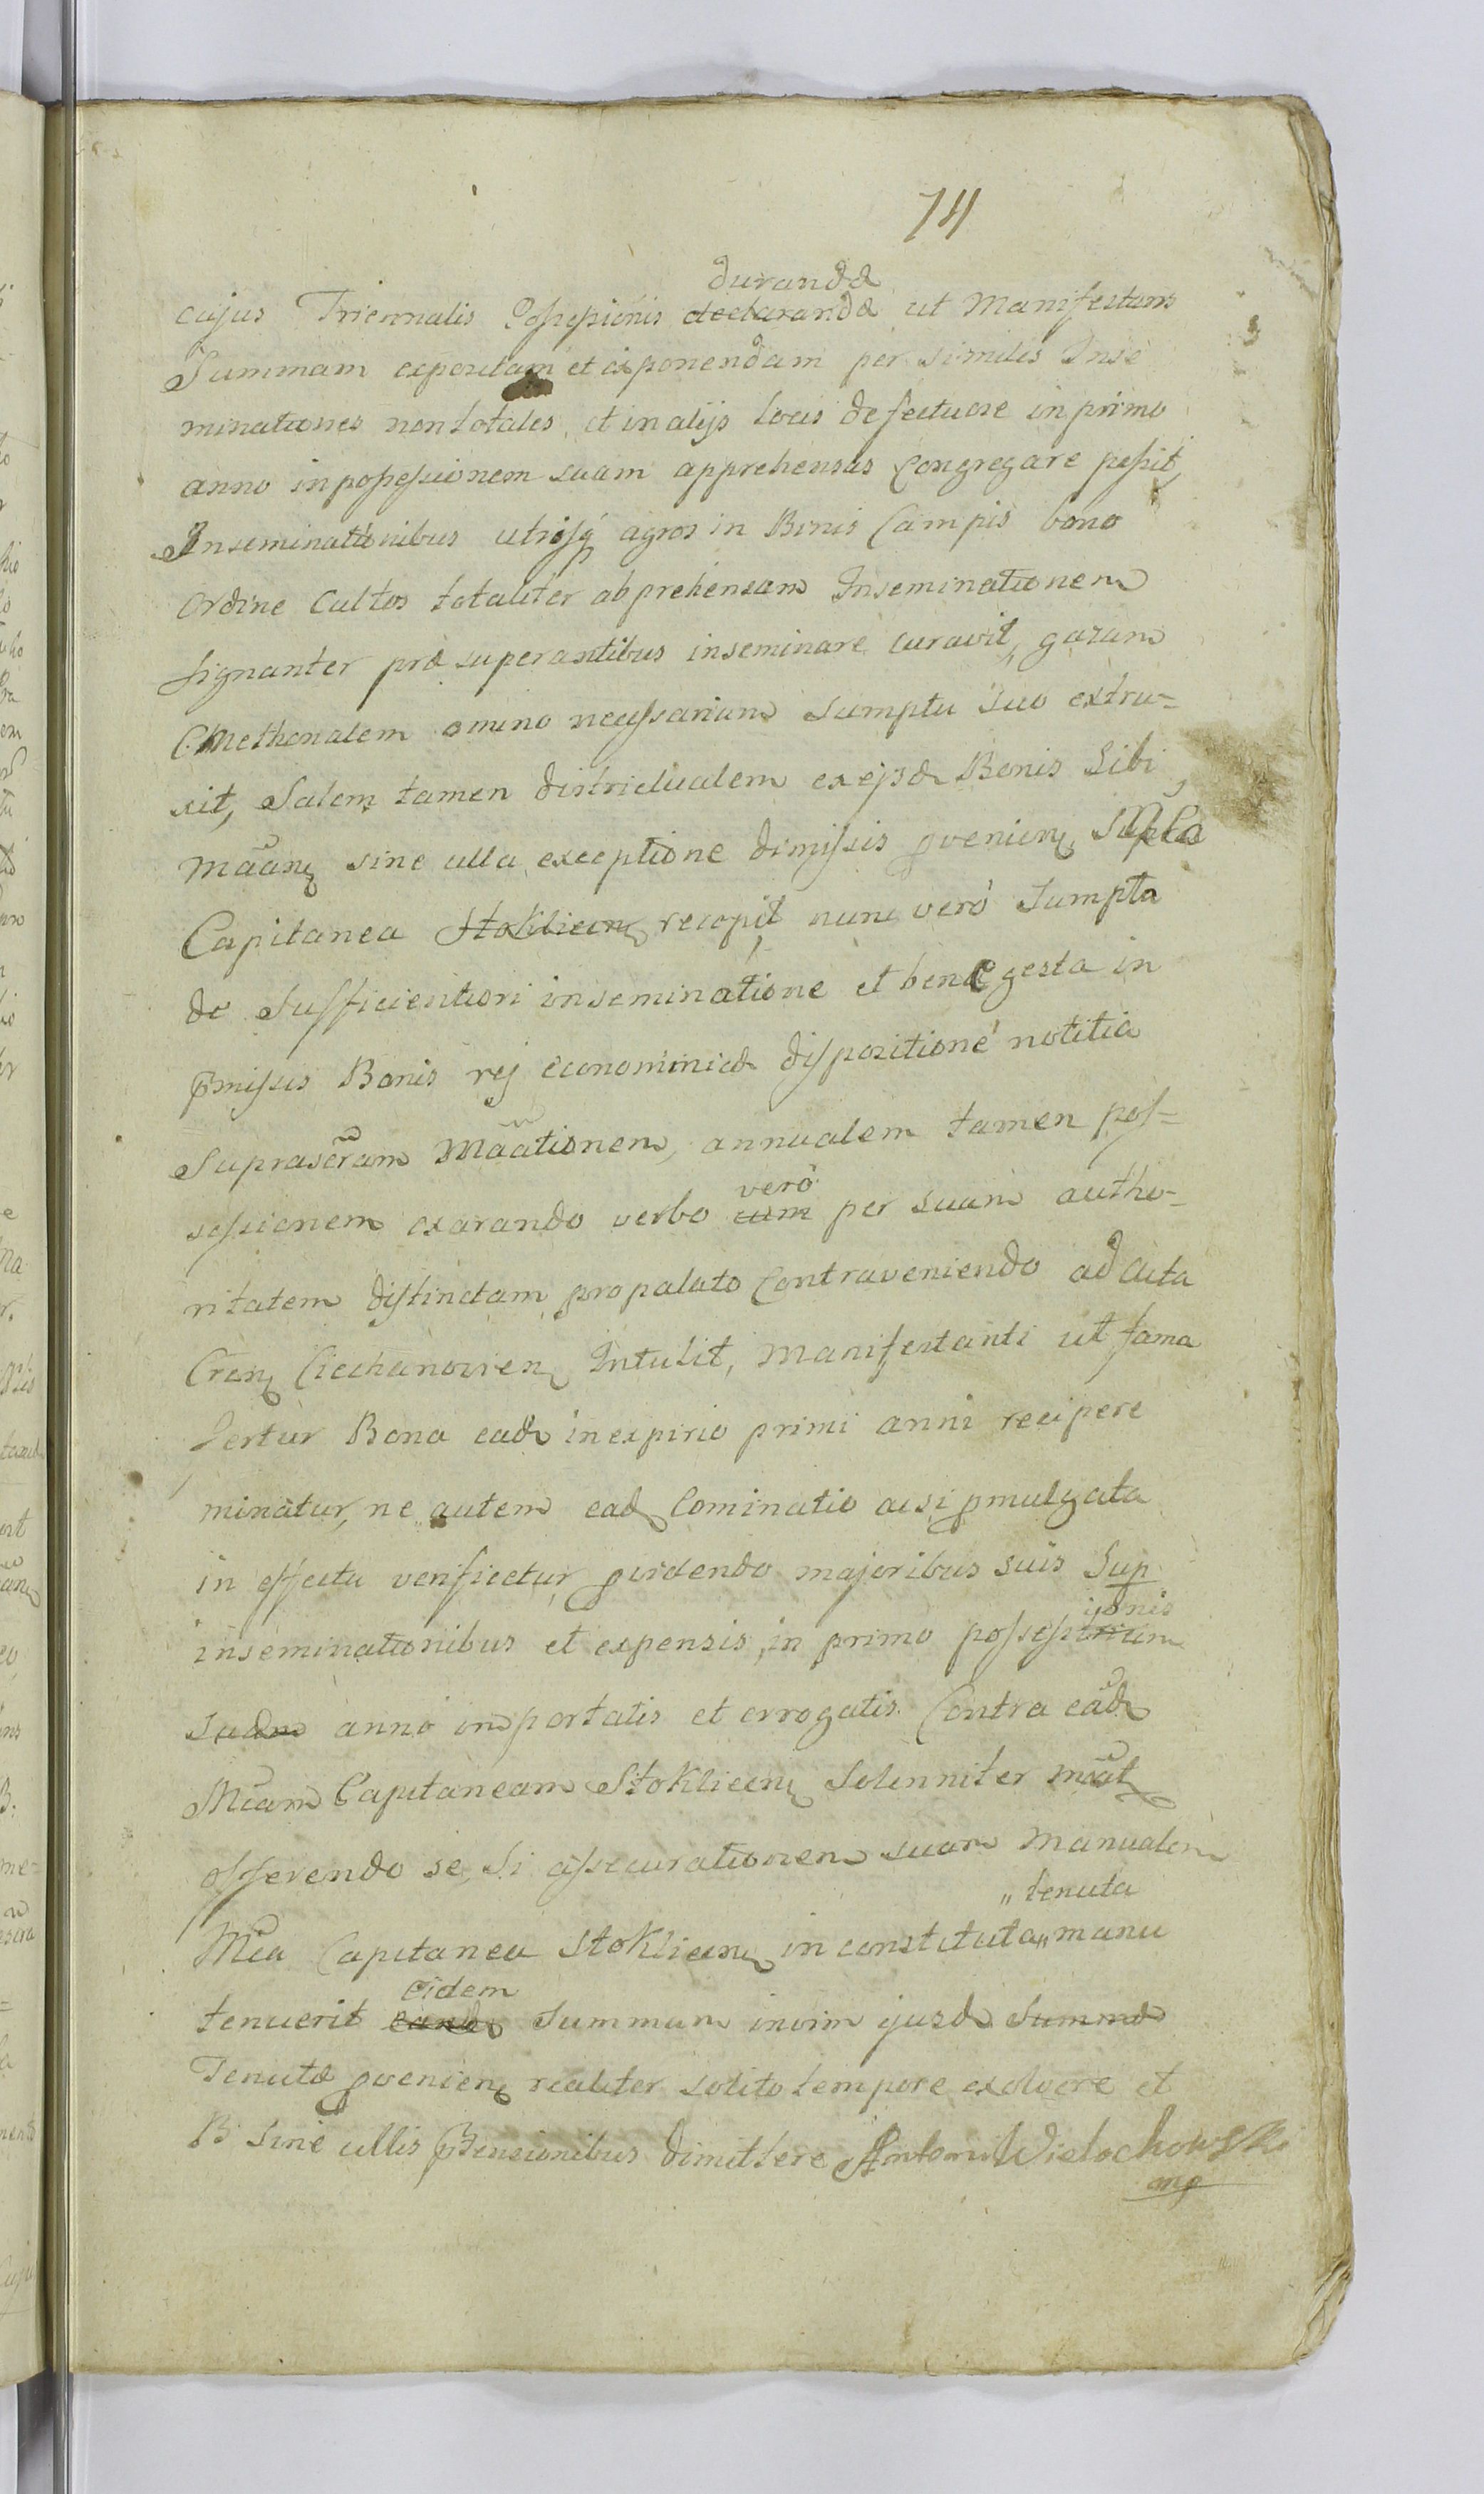 74
durandæ
cujus Triennalis Possessionis declarandæ ut Manifestans
Summam expositam et exponendam per similes Inse
minationes non totales et in alijs locis defectuose in primo
anno in possessionem suam apprehensas Congregare possit,
Inseminationibus utrisq agros in Binis Campis bono
Ordine Cultos totaliter abprehensam Inseminationem
signanter præ superantibus inseminare curavit, gazam
CMethonalem omino necessariam Sumptu suo extru=
xit, Salem tamen districtualem ex ejsd Bonis Sibi
Mãan sine ulla exceptione dimissis pvenien, Supta
Capitanea Stoklicen recepit nunc verò Sumpta
de Sufficientiori inseminatione et bene gesta in
pmissis Bonis rej economicæ dispositione notitia
Suprascram Mãationem, annualem tamen pos=
vero
sessionem exarando verbo cum per suam autho=
ritatem distinctam propalato Contraveniendo ad Acta
Cren Ciechanovien Intulit, Manifestanti ut fama
fertur Bona ead in expirio primi anni recipere
minatur, ne autem ead Cominatio acsi pmulgata
in effectu verificetur pvidendo majoribus suis Sup
ijonis
inseminationibus et expensis, in primo possessi
anno inportatis et errogatis Contra eãd
Mcam Capitaneam Stoklicen Solenniter mãt
offerendo se, Si assecurationem suam Manualem
„tenuta
Mca Capitanea Stoklicen in constituta„ manu
eidem
tenuerit eand Summam invim ejusd Summæ
Tenutæ pvenien realiter solito tempore exolvere et
B sine ullis ptensionibus dimittere Antoni Wielochowski
mp